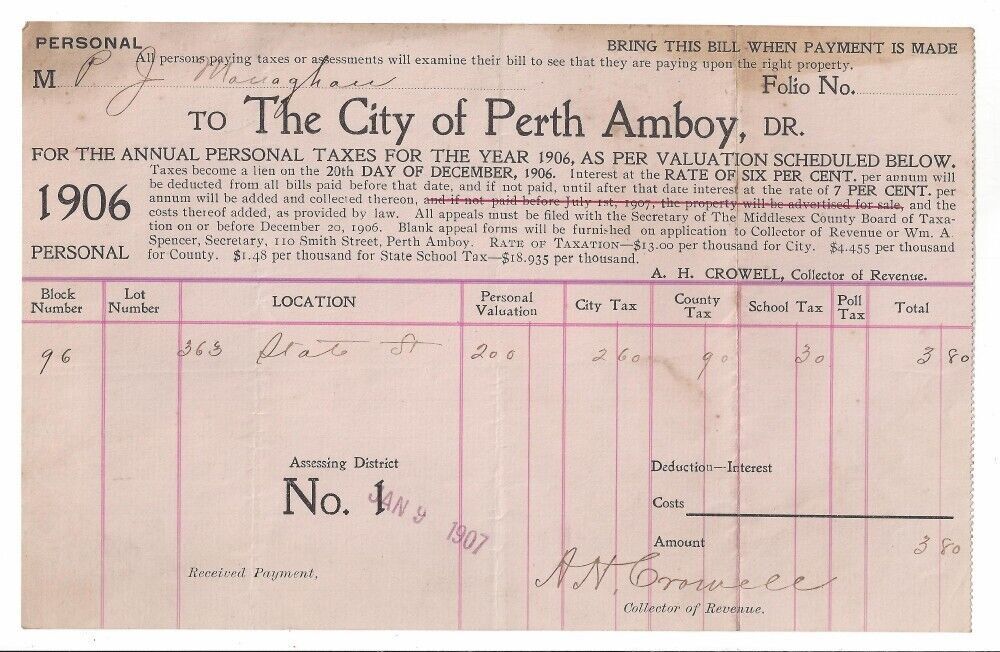 PERSONAL
BRING THIS BILL WHEN PAYMENT IS MADE
All persons paying taxes or assessments will examine their bill to see that they are paying upon the right property.
M P. J Monaghan
Folio No.
TO The City of Perth Amboy, DR.
FOR THE ANNUAL PERSONAL TAXES FOR THE YEAR 1906, AS PER VALUATION SCHEDULED BELOW.
1906
PERSONAL
Taxes become a lien on the 20th DAY OF DECEMBER, 1906. Interest at the RATE OF SIX PER CENT. per annum will
be deducted from all bills paid before that date, and if not paid, until after that date interest at the rate of 7 PER CENT. per
annum will be added and collected thereon, and if not paid before July 1st, 1907, the property will be advertised for sale, and the
costs thereof added, as provided by law. All appeals must be filed with the Secretary of The Middlesex County Board of Taxa-
tion on or before December 20, 1906. Blank appeal forms will be furnished on application to Collector of Revenue or Wm. A.
Spencer, Secretary, 110 Smith Street, Perth Amboy. RATE OF TAXATION—$13.00 per thousand for City. $4.455 per thousand
for County. $1.48 per thousand for State School Tax—$18.935 per thousand.
A. H. CROWELL, Collector of Revenue.
Block Number Lot Number LOCATION Personal Valuation City Tax County Tax School Tax Poll Tax Total
96 363 State St 200 2 60 90 30 3 80
Assessing District
No. 1
JAN 9 1907
Deduction—Interest
Costs
Amount 3 80
Received Payment,
A. H. Crowell
Collector of Revenue.